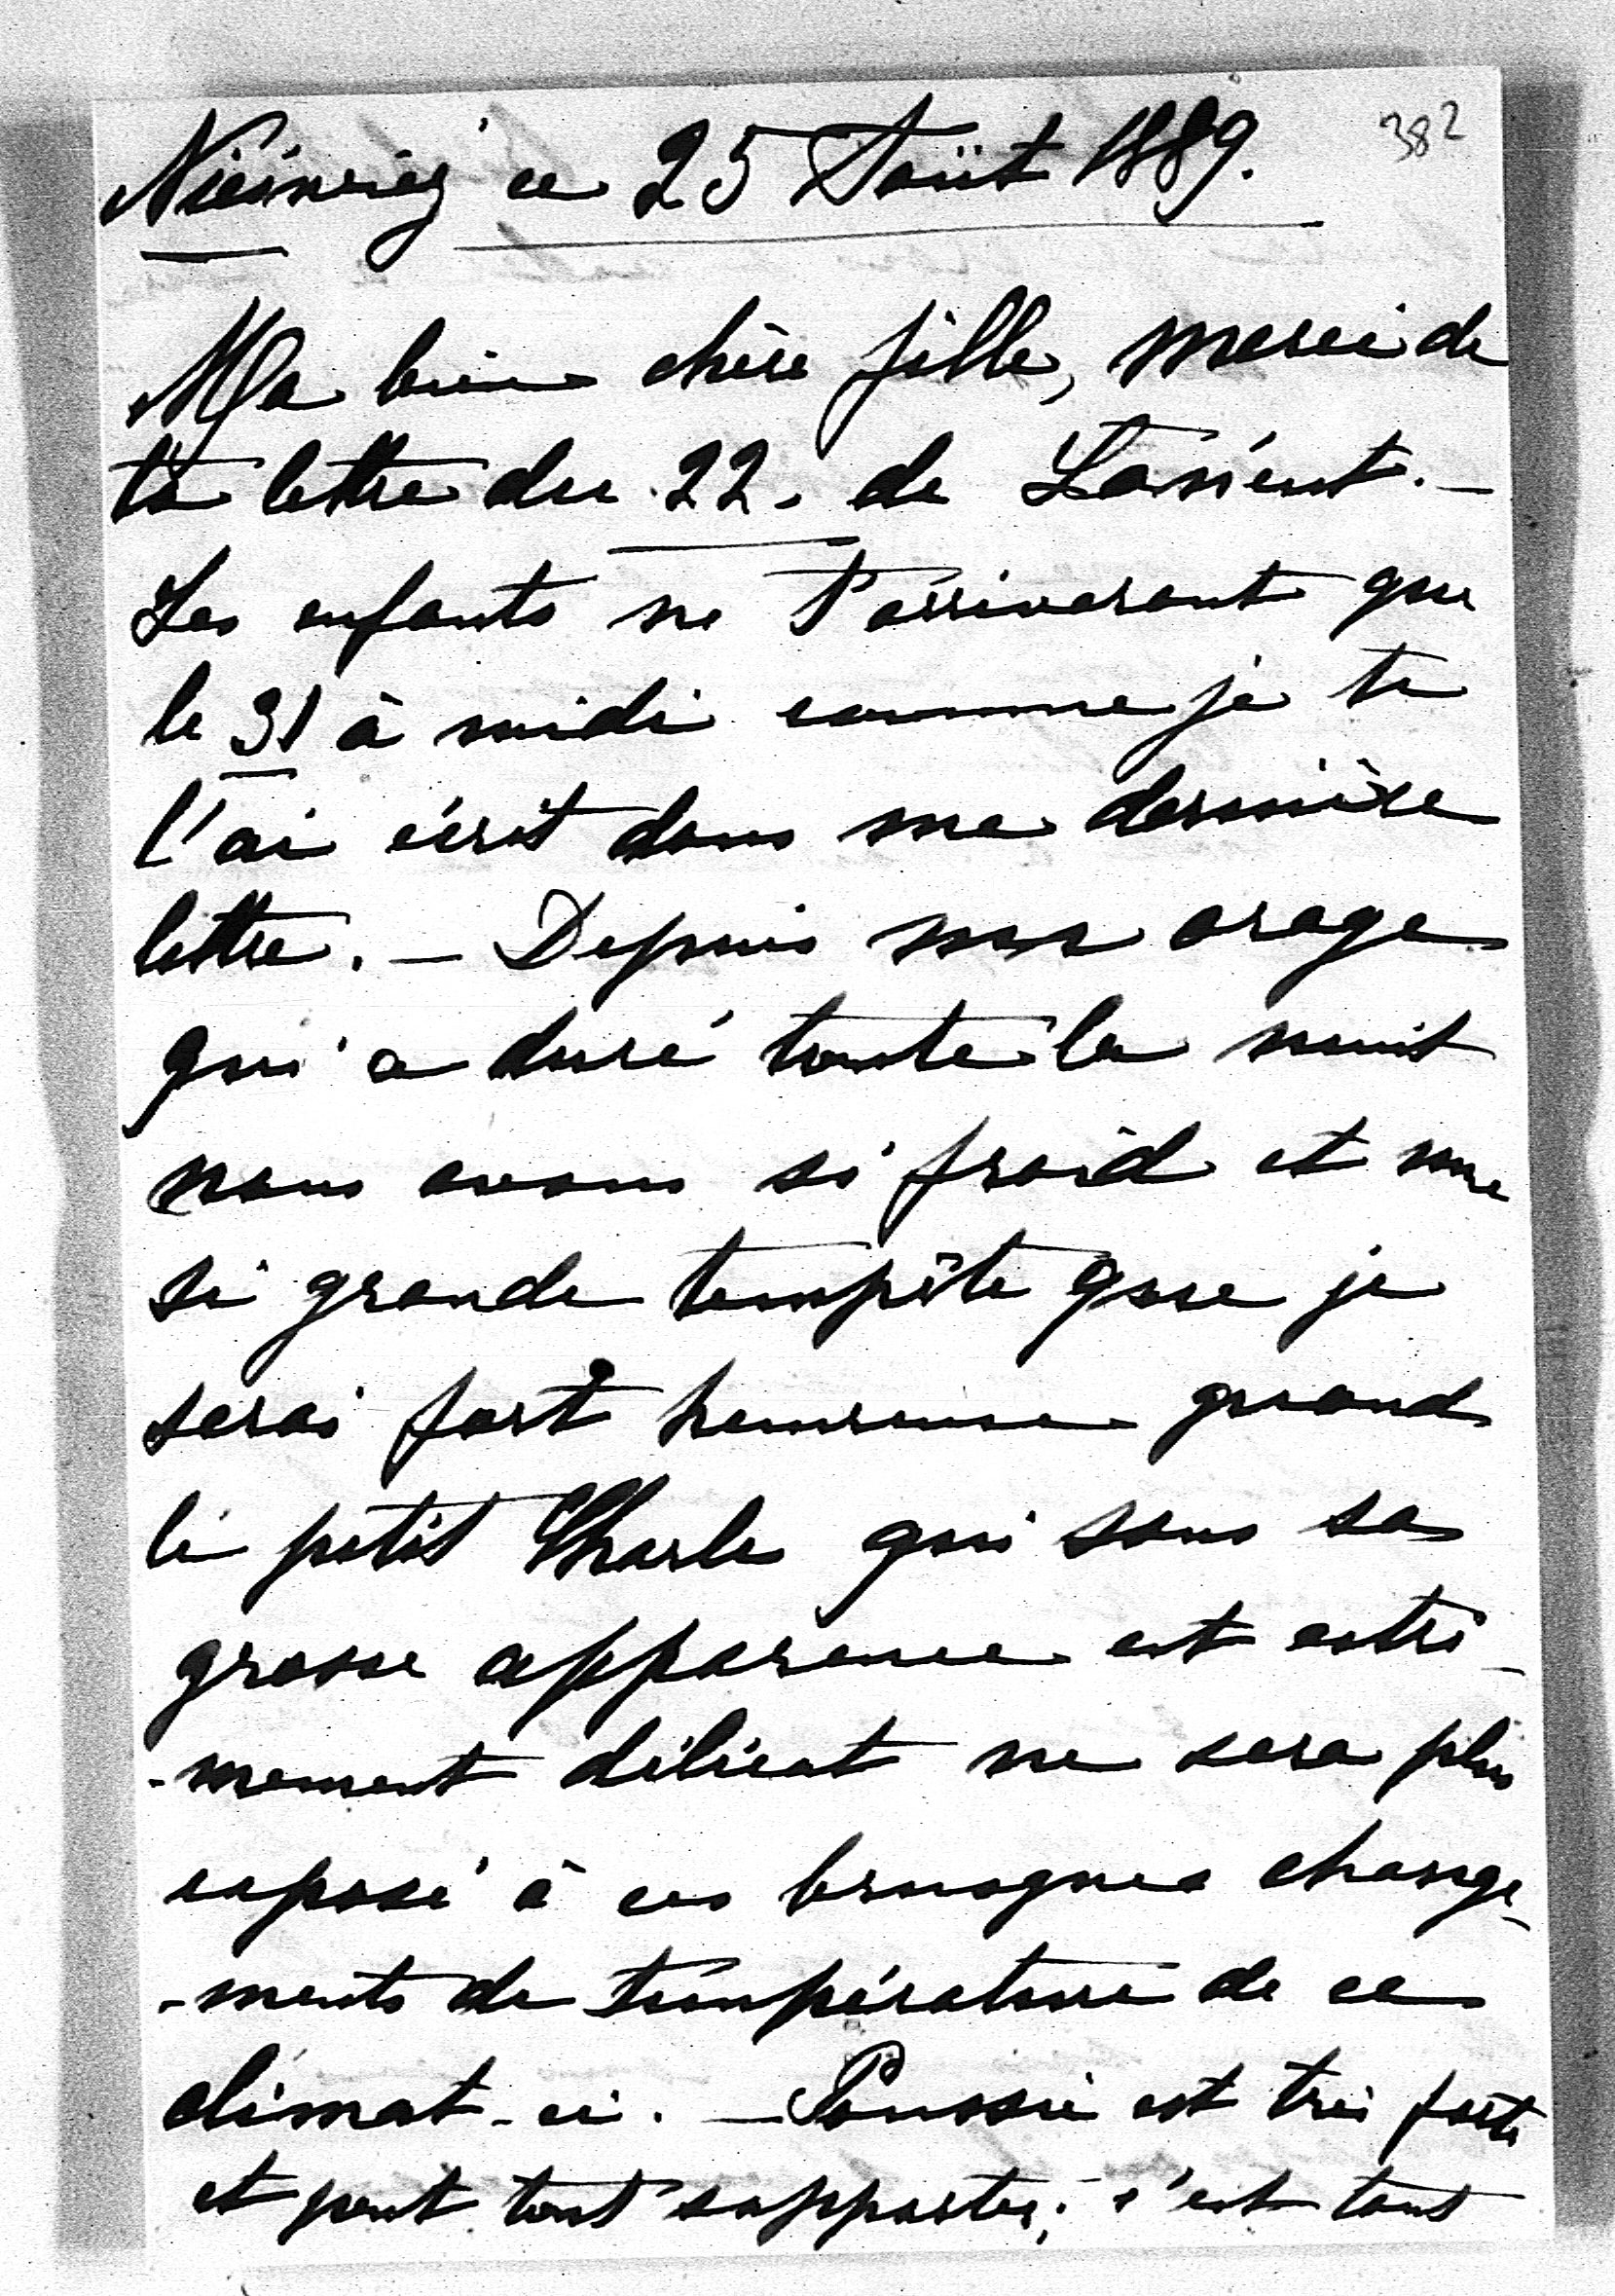 382
ce 25 Août 1889.
Ma bien chère fille, merci de
ta lettre du 22. de Lorient. —
Les enfants ne t'arriveront que
le 31 à midi comme je te
l'ai écrit dans ma dernière
lettre. — Depuis nos orage
qui a duré toute la nuit
nous avons si froid et une
si grande tempête que je
serai fort heureuse quand
le petit Charle qui sous sa
grosse apparence est extrê-
-mement délicat ne sera plus
exposé à ces brusques change-
-ments de température de ce
climat-ci. — Poussie est très forte
et peut tout supporter; c'est tout